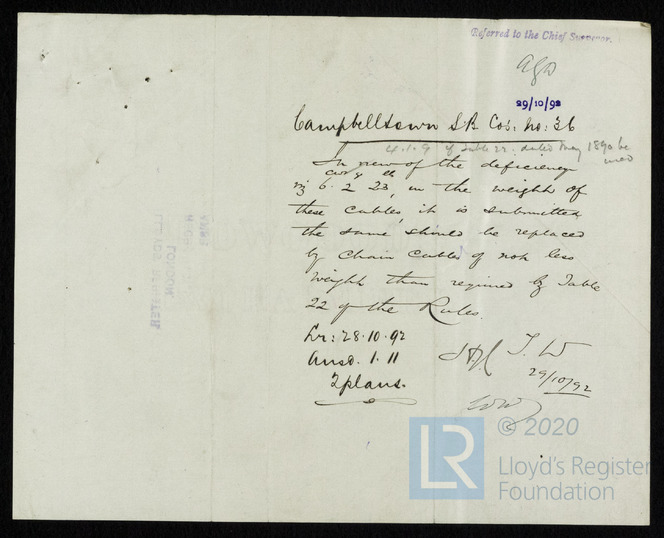 Referred to the Chief Surveyor.
29/10/92
Campbelltown S B Cos: No: 36
4.1.9 of Table 22. dated May 1890 be
used
In view of the deficiency
cwt q lb
viz 6. 2 23, in the weight of
these cables, it is submitted
the same should be replaced
by chain cables of not less
weight than required by Table
22 of the Rules.
Lr: 28.10.92
Ansd. 1.11
2 plans.
T. W
29/10/92
LLOYD'S REGISTER
LONDON
LR © 2020
Lloyd's Register
Foundation